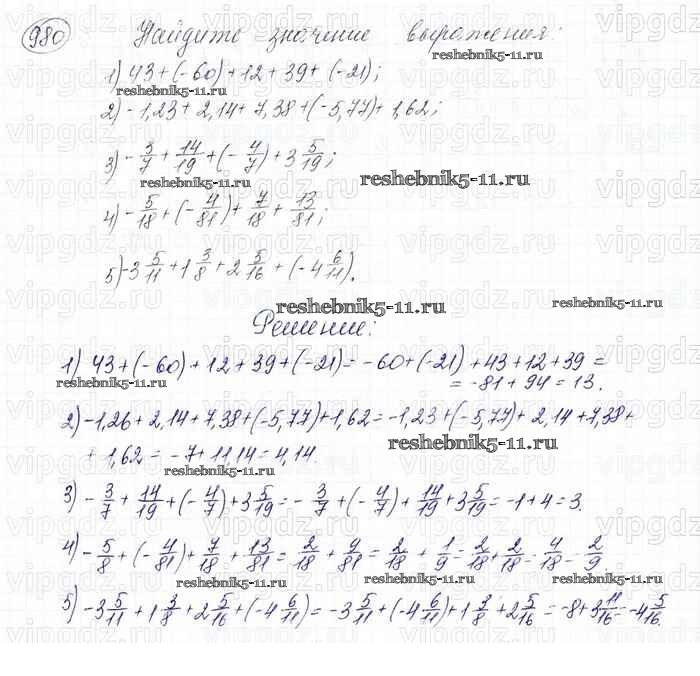 980
Найдите значение выражения:
reshebnik5-11.ru
1) 43 + (-60) + 12 + 39 + (-21);
reshebnik5-11.ru
2) -1,23 + 2,14 + 7,38 + (-5,77) + 1,62;
3) -3/7 + 14/19 + (-4/7) + 3 5/19;
reshebnik5-11.ru
reshebnik5-11.ru
4) -5/18 + (-4/81) + 7/18 + 13/81;
5) -3 5/11 + 1 3/8 + 2 5/16 + (-4 6/11).
reshebnik5-11.ru
reshebnik5-11.ru
Решение:
1) 43 + (-60) + 12 + 39 + (-21) = -60 + (-21) + 43 + 12 + 39 =
reshebnik5-11.ru
= -81 + 94 = 13.
2) -1,26 + 2,14 + 7,38 + (-5,77) + 1,62 = -1,23 + (-5,77) + 2,14 + 7,38 +
reshebnik5-11.ru
+ 1,62 = -7 + 11,14 = 4,14.
reshebnik5-11.ru
3) -3/7 + 14/19 + (-4/7) + 3 5/19 = -3/7 + (-4/7) + 14/19 + 3 5/19 = -1 + 4 = 3.
4) -5/8 + (-4/81) + 7/18 + 13/81 = 2/18 + 9/81 = 2/18 + 1/9 = 2/18 + 2/18 = 4/18 = 2/9
reshebnik5-11.ru
reshebnik5-11.ru
5) -3 5/11 + 1 3/8 + 2 5/16 + (-4 6/11) = -3 5/11 + (-4 6/11) + 1 3/8 + 2 5/16 = -8 + 3 11/16 = -4 5/16.
reshebnik5-11.ru